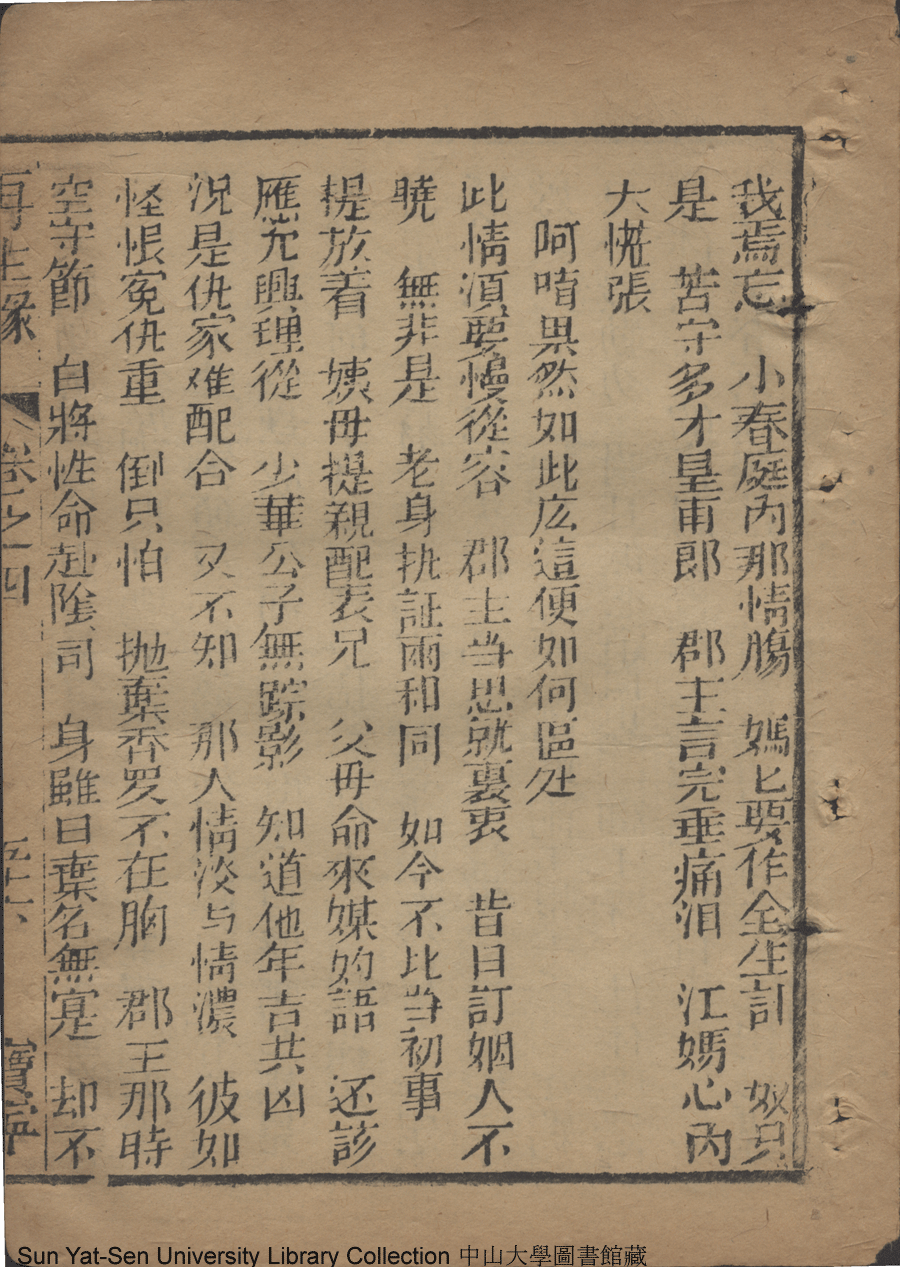 我焉忘　小春庭內那情腸　媽匕要作全生計　奴只
是　苦守多才皇甫郎　郡主言完垂痛泪　江媽心內
大慌張
阿唷果然如此庅這便如何區处
此情湏要慢從容　郡主当思就裏衷　昔日訂姻人不
曉　無非是　老身执証兩和同　如今不比当初事
提放着　姨毋提親配表兄　父毋命來媒妁語　还該
應允興理從　少華公子無踪影　知道他年吉共凶
况是仇家难配合　又不知　那人情淡与情濃　彼如
怪恨冤仇重　倒只怕　拋棄香罗不在胸　郡王那時
空守節　白將性命赴隂司　身雖日葉名無寔　却不
再生緣　卷之十四　五十六　寶寧
Sun Yat-Sen University Library Collection 中山大學圖書館藏